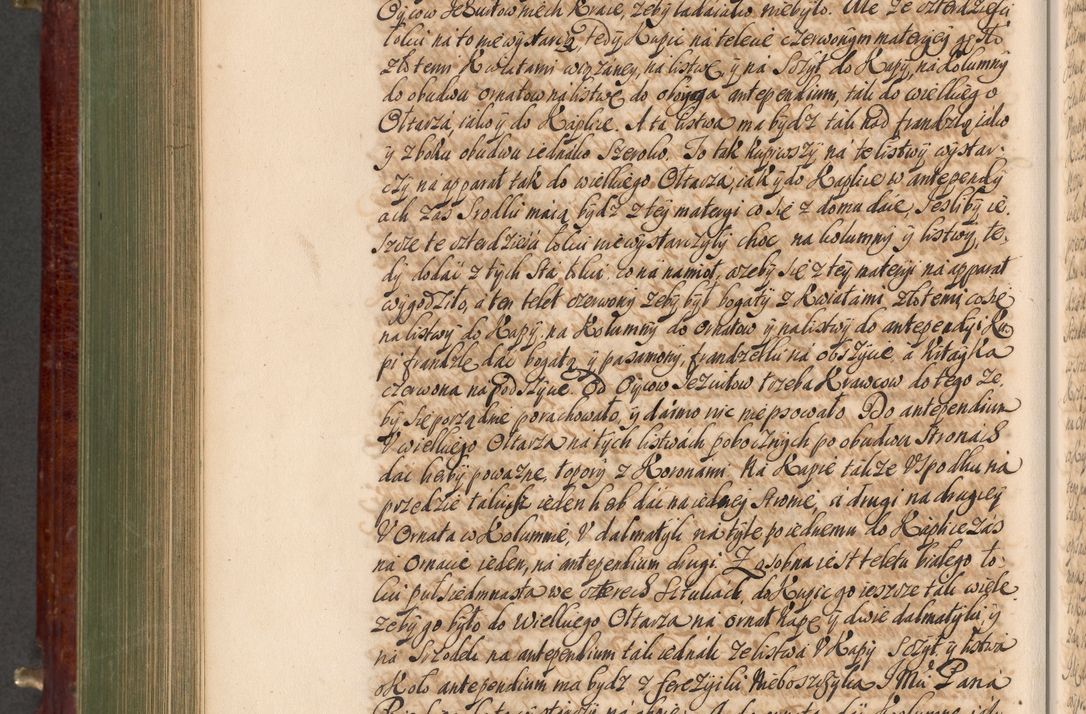 Oycow Jezuitow niech kraie, żeby ladaiako niebyło. Ale że czterdzieści
łokci na to niewystarczą, tedy Kupić na telecie czerwonym materyey gęsto
złotemi Kwiatami wiązaney, na listwę ÿ na Szczyt do Kapy, na Kolumny
do obudwu ornatow na listwę do oboyga antependium, tak do wielkiego
Ołtarza iako ÿ do Kaplice. A ta listwa ma bydź tak nad frandzlą iako
ÿ z boku obudwu iednako szeroko. To tak kupiwszy na te listwy wystar-
czy na apparat tak do wielkiego Ołtarza, iak ÿ do Kaplice w antependy
ach zas srodki maią bydź z tey materyi co się z domu daie, Jesliby ie-
szcze te czterdzieści łokci niewystarczyły choc na kolumny ÿ listwy, te-
dy dodać z tych sta łokci co na namiot, a żeby się z tey materyi na apparat
wygodziło, a ten telet czerwony żeby był bogaty z Kwiatami złotemi co się
na listwy do Kapy na Kolumny do ornatow ÿ na listwy do antependyi Ku-
pi frandzle dać bogatą ÿ pasamony, frandzelki na obszycie a Kitayka
czerwona na podszycie. Od Oycow Jezuitow trzeba Krawcow do tego że-
by się porządnie porachowało, ÿ darmo nic niepsowało. Do antependium
V wielkiego Ołtarza na tych listwach pobocznych po obudwu stronach
dać herby poważne, topory z Koronami. Na Kapie także V spodku na
przedzie takich ieden herb dać na iedney stronie, a drugi na drugiey
V Ornata w Kolumnie, V dalmatyk na tyle po iednemu do Kaplice zas
na Ornacie ieden, na antependium drugi. Zosobna iest teletu białego ło-
kci pułsiedmnasta we czterech sztukach, do Kupić go ieszcze tak wiele
żeby go było do Wielkiego Ołtarza na ornat kapę ÿ dwie dalmatyki, ÿ
na srzodek na antependium tak iednak że listwa V Kapy Szczyt ÿ listwa
około antependium ma bydź z ferezyiki Nieboszczyka J Mci Pana